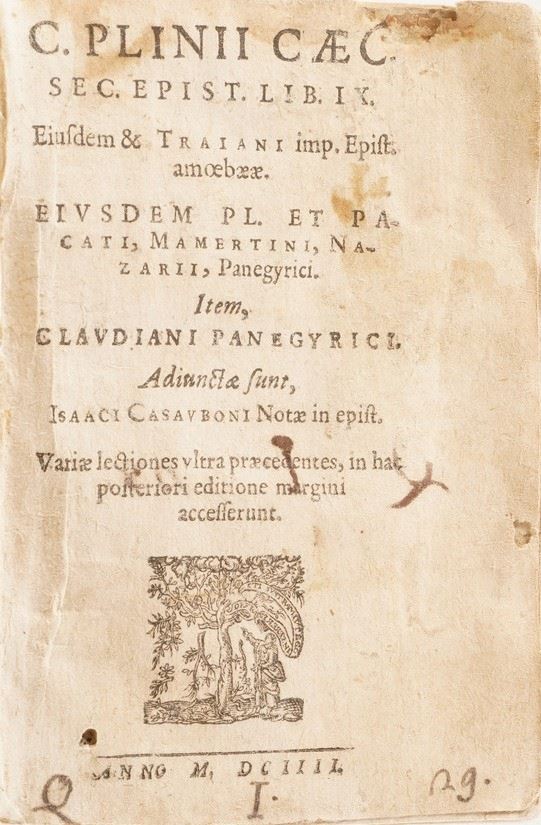 C. PLINII CÆC.
SEC. EPIST. LIB. IX.
Eiuſdem & TRAIANI imp. Epiſt.
amœbææ.
EIVSDEM PL. ET PA-
CATI, MAMERTINI, NA-
ZARII, Panegyrici.
Item,
CLAVDIANI PANEGYRICI.
Adiunctæ ſunt,
ISAACI CASAVBONI Notæ in epiſt.
Variæ lectiones vltra præcedentes, in hac
poſteriori editione margini
acceſſerunt.
ANNO M. DCIIII.
Q I. 29.